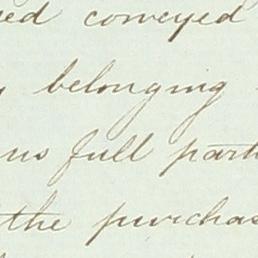 ed conveyed
belonging
us full part
the purchas